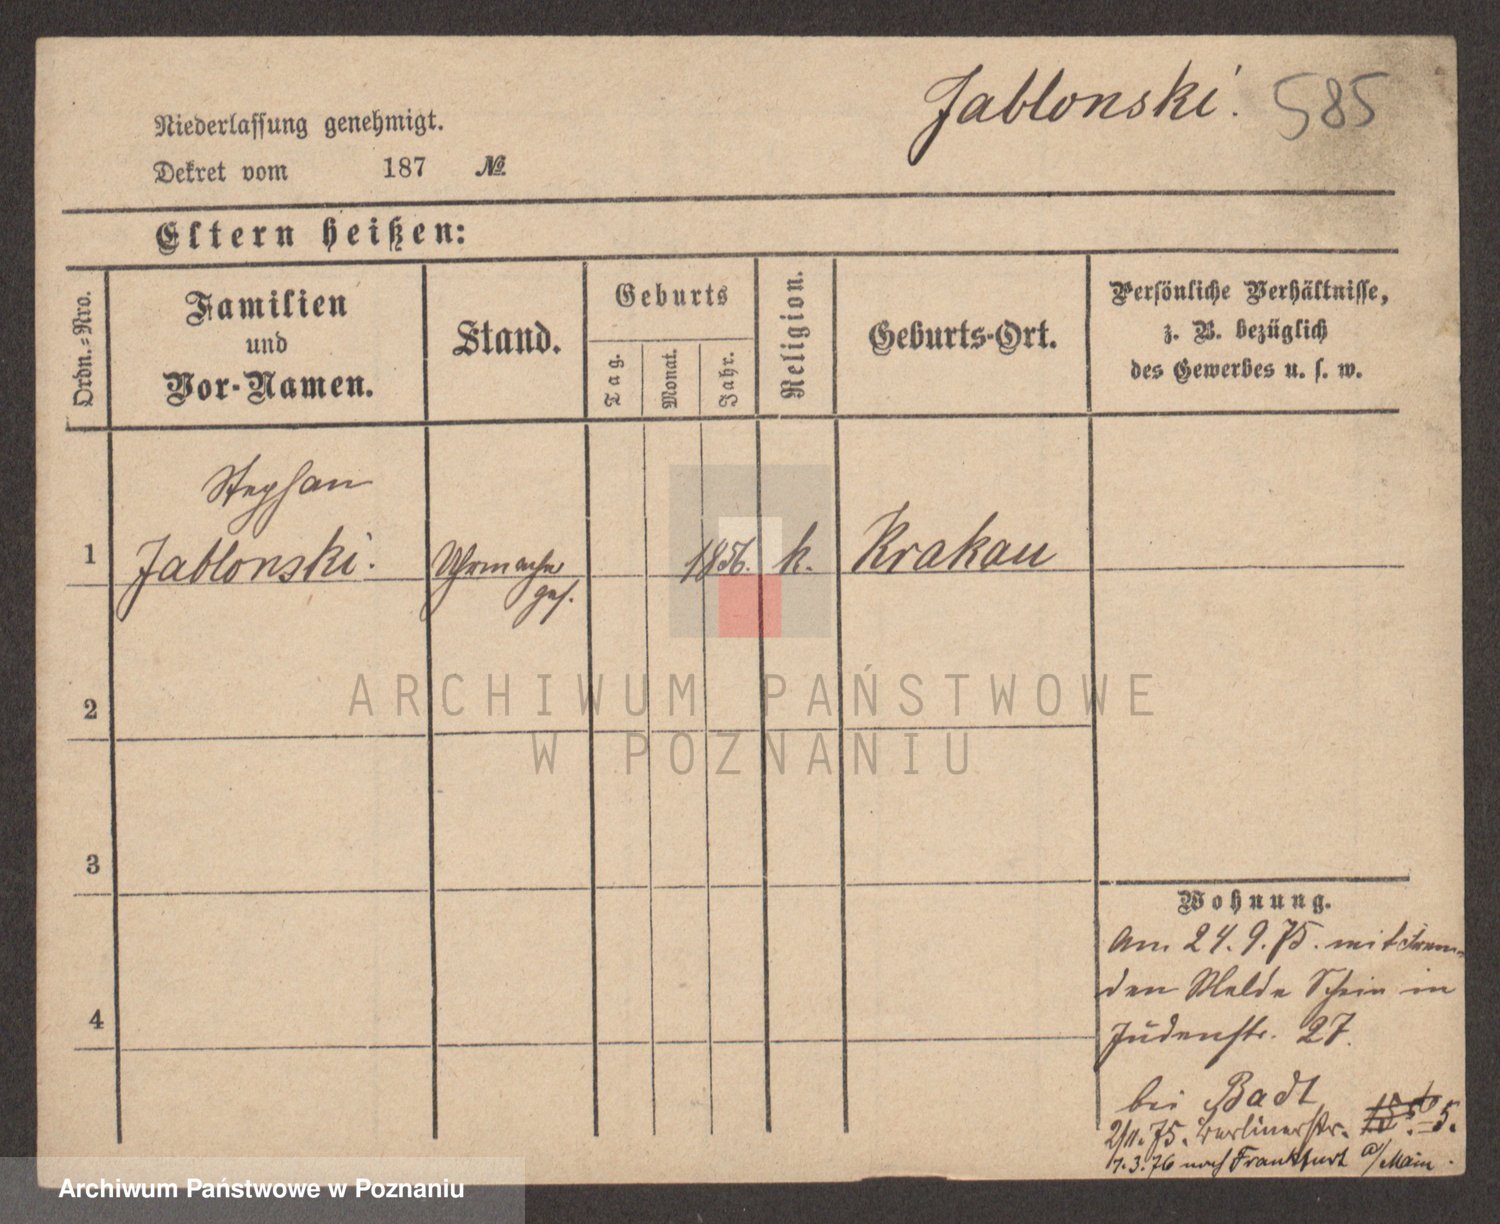 Jablonski. 585
Niederlassung genehmigt.
Dekret vom 187 №
Eltern heißen:
Ordn.-Nro.
Familien
und
Vor-Namen.
Stand.
Geburts
Tag.
Monat.
Jahr.
Religion.
Geburts-Ort.
Persönliche Verhältnisse,
z. B. bezüglich
des Gewerbes u. s. w.
Stephan
1 Jablonski. Uhrmacher 1856. k. Krakau
ges.
2
3
4
Wohnung.
Am 24.9.75. mit Frem-
den Melde Schein in
Judenstr. 27.
bei Badt
2/11.75. Berlinerstr. 5.
7.3.76 nach Frankfurt a/Main.
ARCHIWUM PAŃSTWOWE
W POZNANIU
Archiwum Państwowe w Poznaniu